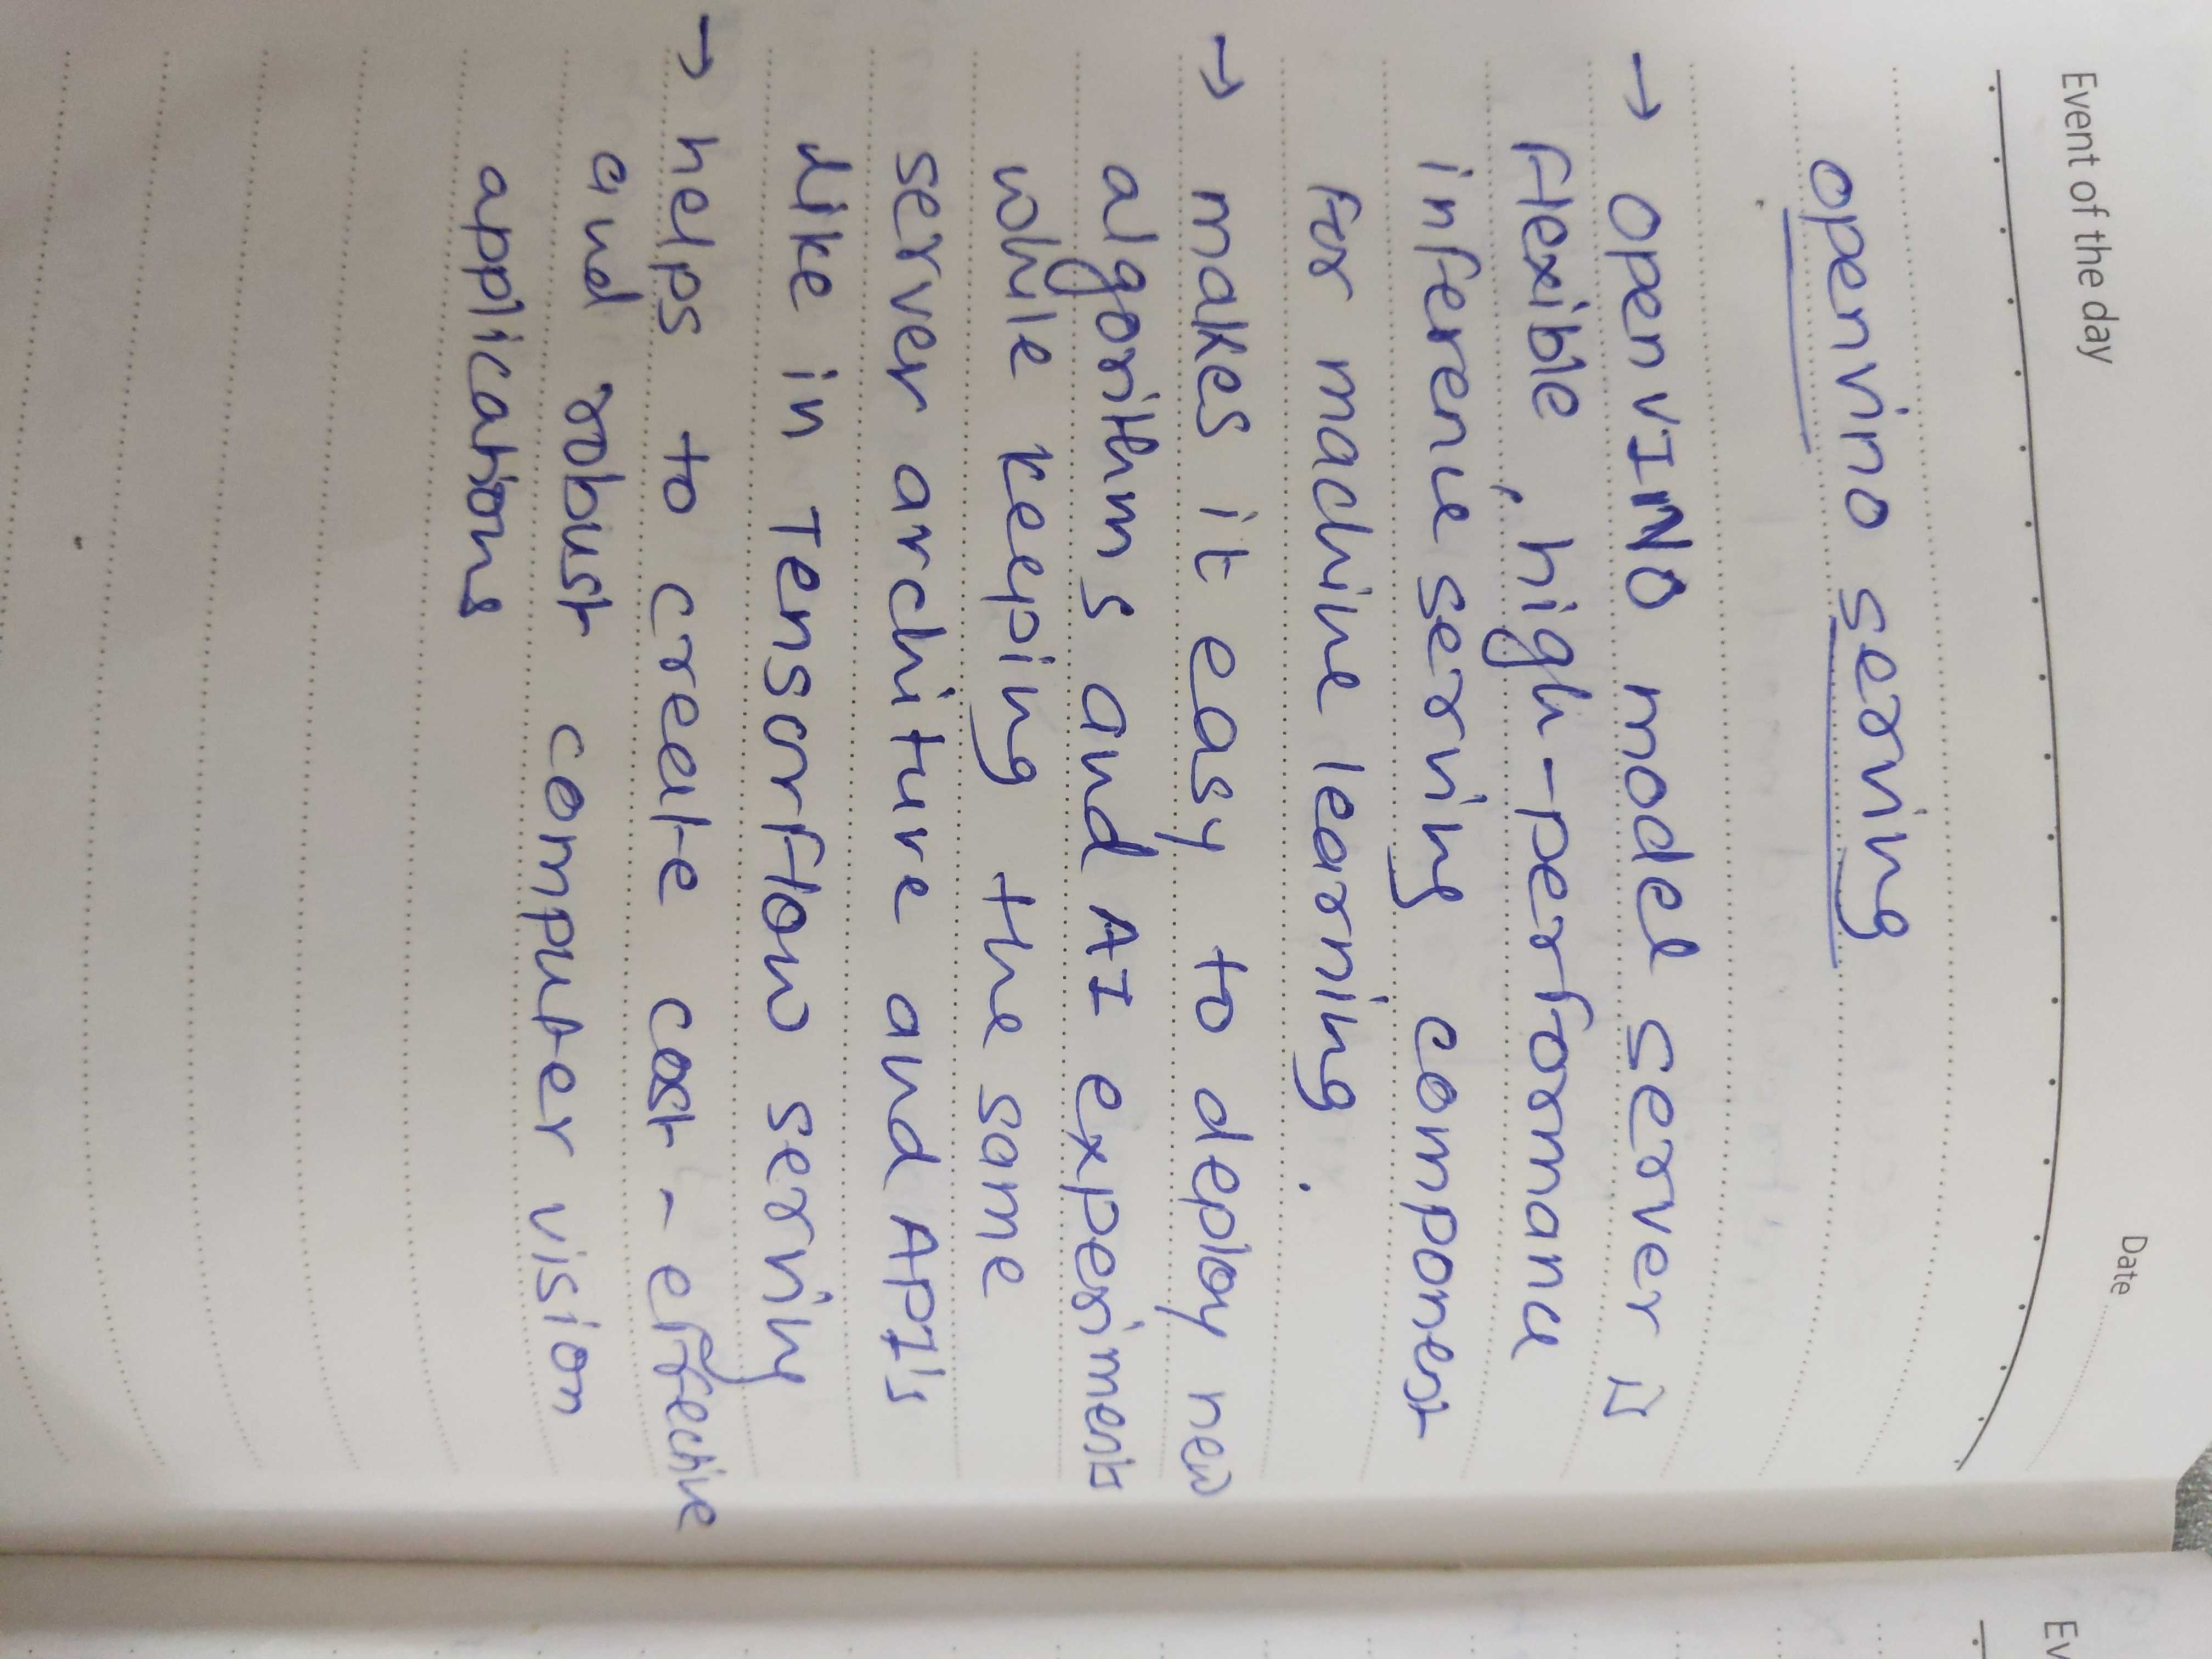 Event of the day
Date
openvino serving
→ openVINO model server is
flexible, high-performance
inference serving component
for machine learning.
→ makes it easy to deploy new
algorithms and AI experiments
while keeping the same
server architure and API's
like in Tensorflow serving
→ helps to create cost-effective
and robust computer vision
applications
Ev